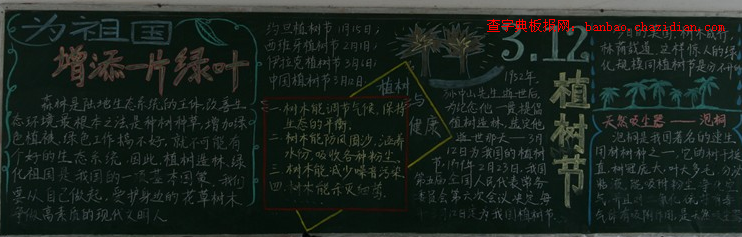 查字典板报网: banbao.chazidian.com
为祖国
增添一片绿叶
森林是陆地生态系统的主体,改善生
态环境最根本之法是种树种草,增加绿
色植被,绿色工作搞不好,就不可能有
个好的生态系统。因此,植树造林,绿
化祖国是我国的一项基本国策,我们
要从自己做起,爱护身边的花草树木
争做高素质的现代文明人
约旦植树节 1月15日;
西班牙植树节 2月1日;
伊拉克植树节 3月6日;
中国植树节 3月12日.
植树
与
健康
一.树木能调节气候,保持
生态的平衡.
二.树木能防风固沙,涵养
水份,吸收各种粉尘.
三.树木能减少噪音污染
四.树木能杀灭细菌.
3.12
植树节
孙中山先生逝世后,
为纪念他一贯提倡
植树造林,就定他
逝世那天——3月
12日为我国的植树
节.1979年2月23日,我国
第五届全国人民代表常务
委员会第六次会议决定每
年3月12日定为我国植树节.
林荫载道,这样惊人的绿
化规模同植树节是分不开的
天然吸尘器——泡桐
泡桐是我国著名的速生
用材树种之一,它的树干挺
直,树冠庞大,叶大多毛,分泌